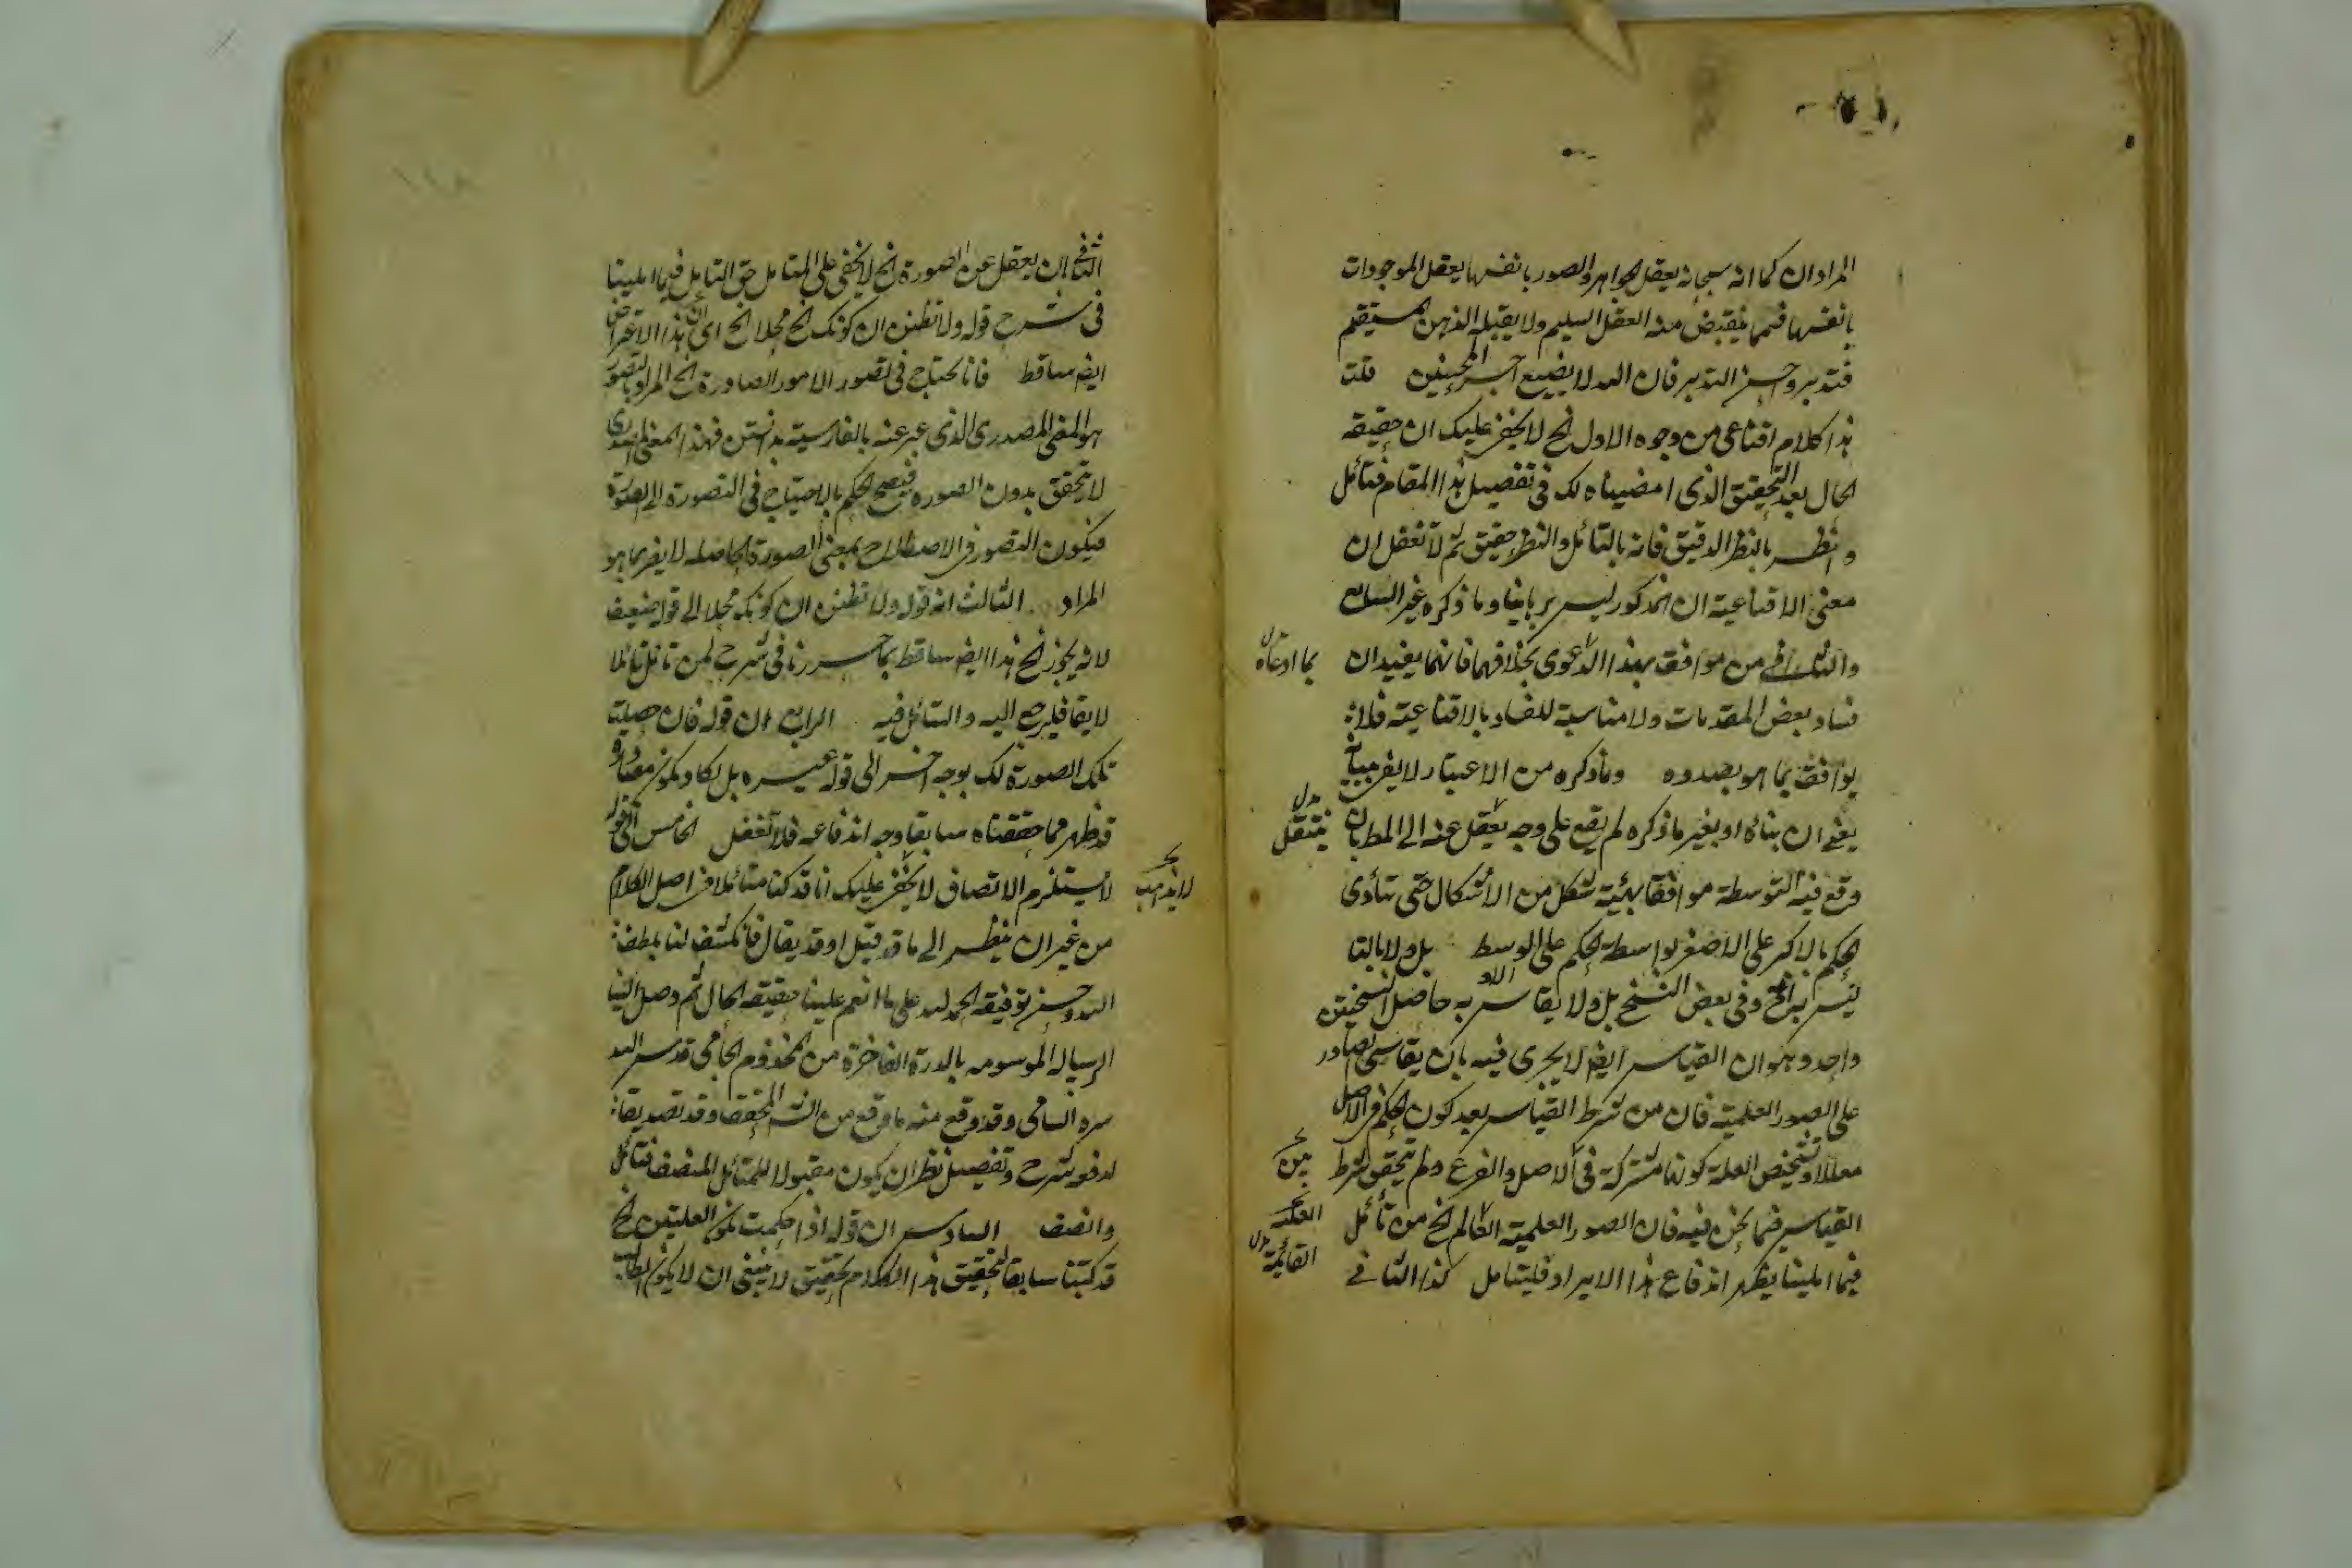 المراد ان كما انه سبحانه يعقل الجواهر والصور بانفسها يعقل الموجودات
بانفسها فمما ينقبض منه العقل السليم ولا يقبله الذهن المستقيم
فتدبر واحسن التدبر فان الله لا يضيع اجر المحسنين قلت
هذا كلام اقناعى من وجوه الاول الخ لا يخفى عليك ان حقيقة
الحال بعد التحقيق الذى امضيناه لك فى تفصيل هذا المقام فتأمل
وانظر بالنظر الدقيق فانه بالتأمل والنظر حقيق ثم لا تغفل ان
معنى الاقناعية ان المذكور ليس برهانيا وما ذكره غير السابع
والثانى من موافق بهذا الدعوى بخلافهما فانهما يفيدان
بما ادعاه
فساد بعض المقدمات ولا مناسبة للفساد بالاقناعية فلا
يوافق بما هو بصدده وما ذكره من الاعتبار لا يغر
يعنى ان بناءه او بغير ما ذكره لم يقع على وجه يعقل عنه الى المط بان
ينتقل
وقع فيه التوسطة موافقا بهيئة شكل من الاشكال حتى يتأدى
الحكم بالاكبر على الاصغر بواسطة الحكم على الاوسط بل ولا بالتا
ليس به الخ وفى بعض النسخ بل ولا يقاس به حاصل النسختين
واحد وهو ان القياس ايضا لا يجرى فيه بان يقاس الصادر
على الصور العلمية فان من شرط القياس بعد كون الحكم فى الاصل
معللا وتشخيص العلة كونها مشتركة فى الاصل والفرع ولم يتحقق شرط
القياس فيما نحن فيه فان الصور العلمية العالم الخ من تأمل
القائمة
فيما املينا يظهر اندفاع هذا الايراد فليتأمل كذا الثانى
الخ ان يعقل عن الصورة الخ لا يخفى على المتأمل حق التأمل فيما املينا
فى شرح قوله ولا تظنن ان كونك الخ محلا الخ اى ان هذا الاعتراض
ايضا ساقط فانا نحتاج فى تصور الامور الصادرة الخ المراد بالتصور
هو المعنى المصدرى الذى عبر عنه بالفارسية بدانستن فهذا المعنى المصدرى
لا يتحقق بدون الصورة فيصح الحكم بالاحتياج فى التصورة الى الصورة
فيكون التصور فى الاصطلاح بمعنى الصورة الحاصلة لا يضر بما هو
المراد الثالث ان قوله ولا تظنن ان كونك محلا الى قوله ضعيف
لانه يجوز الخ هذا ايضا ساقط بما حررنا فى شرح لمن تأمل تأملا
لايقا فليرجع اليه والتأمل فيه الرابع ان قوله فان حصلت
تلك الصورة لك بوجه اخر الى قوله عسيره بل يكاد يكون مصادرة
قد ظهر مما حققناه سابقا وجه اندفاعه فلا تغفل الخامس ان قوله
لا يستلزم الاتصاف لا يخفى عليك انا قد كنا متأملا فى اصل الكلام
لا يذهب
من غير ان ينظر الى ما قد قيل او قد يقال فانكشف لنا بلطف
الله وحسن توفيقه الحمد لله على ما انعم علينا حقيقة الحال ثم وصل الينا
الرسالة الموسومه بالدرة الفاخرة من المخدوم الجامى قدس الله
سره السامى وقد وقع منه ما وقع من المحقق وقد تصديقا
لدفعه بشرح وتفصيل نظن ان يكون مقبولا للمتأمل المنصف فتأمل
وانصف السادس ان قوله اذا حكمت بكون العلتين الخ
قد كتبنا سابقا لتحقيق هذا الكلام تحقيق لا ينبغى ان لا يكون